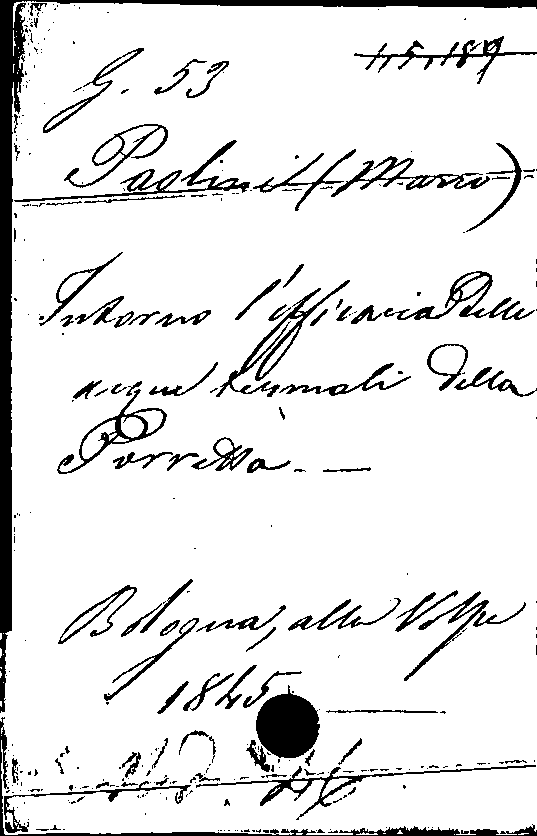 G. 53
Paolini (Marco)
Intorno l'efficacia delle
acque termali della
Porretta. —
Bologna, alla Volpe
1845